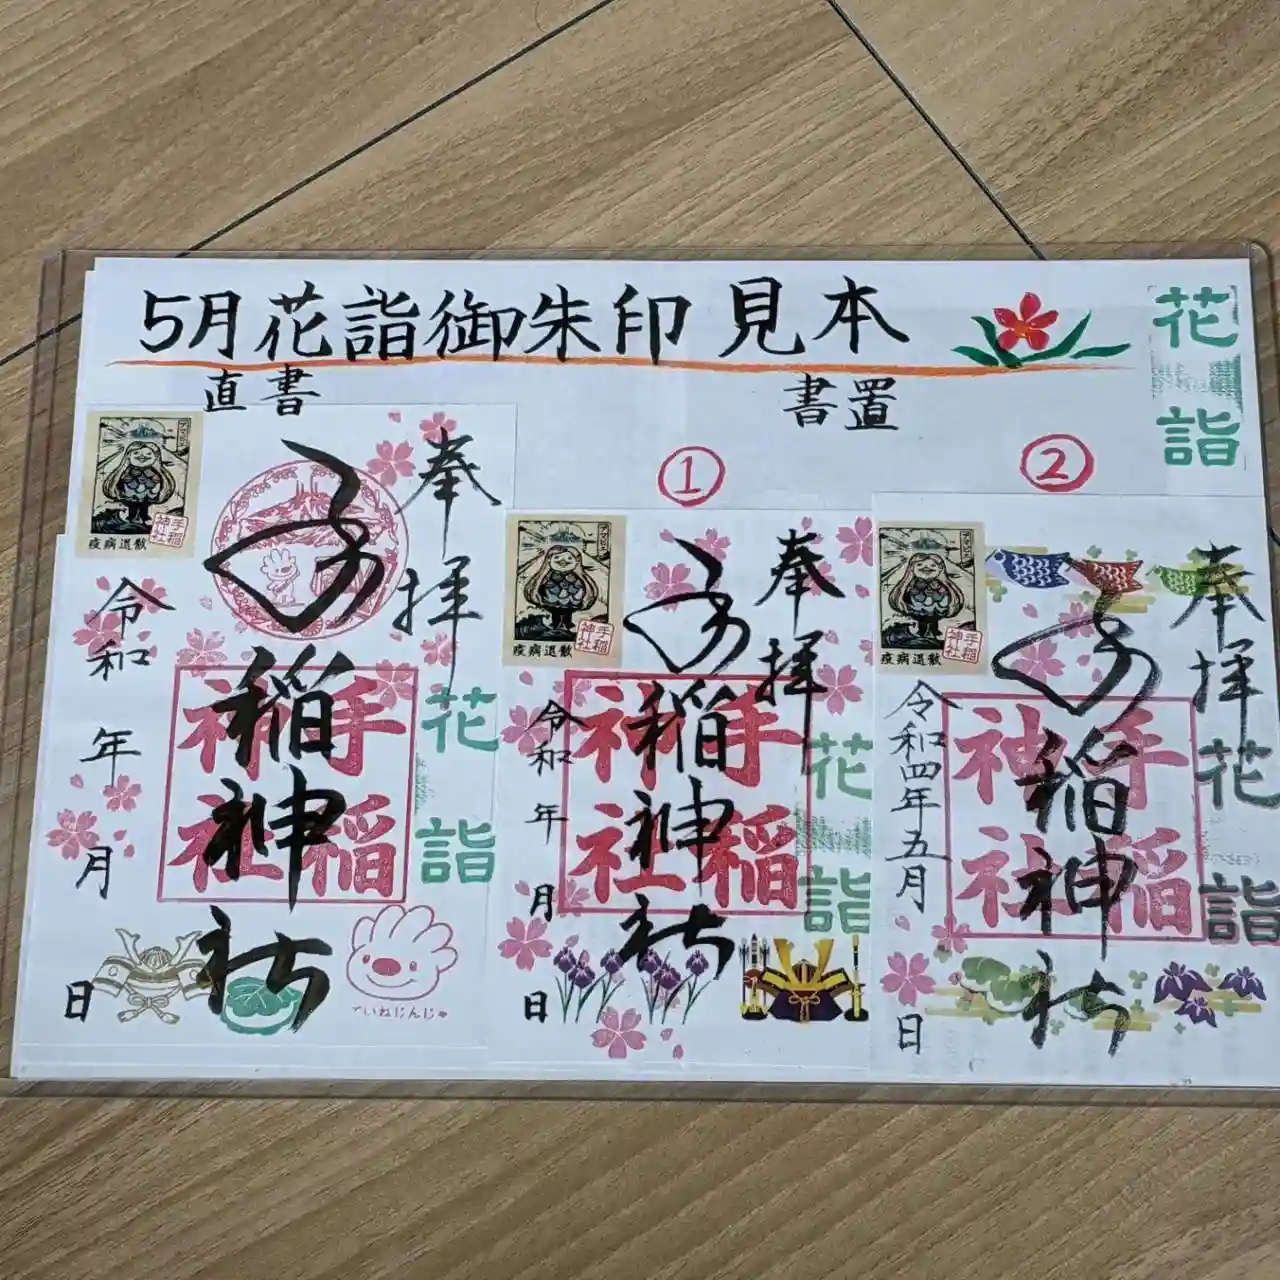 5月花詣御朱印見本
花詣
直書
書置
①
②
奉拝
手稲神社
手稲神社
花詣
令和 年 月 日
アマビエ
疫病退散
手稲神社
ていねじんじゃ
奉拝
手稲神社
手稲神社
花詣
令和 年 月 日
アマビエ
疫病退散
手稲神社
奉拝
手稲神社
手稲神社
花詣
令和四年五月 日
アマビエ
疫病退散
手稲神社